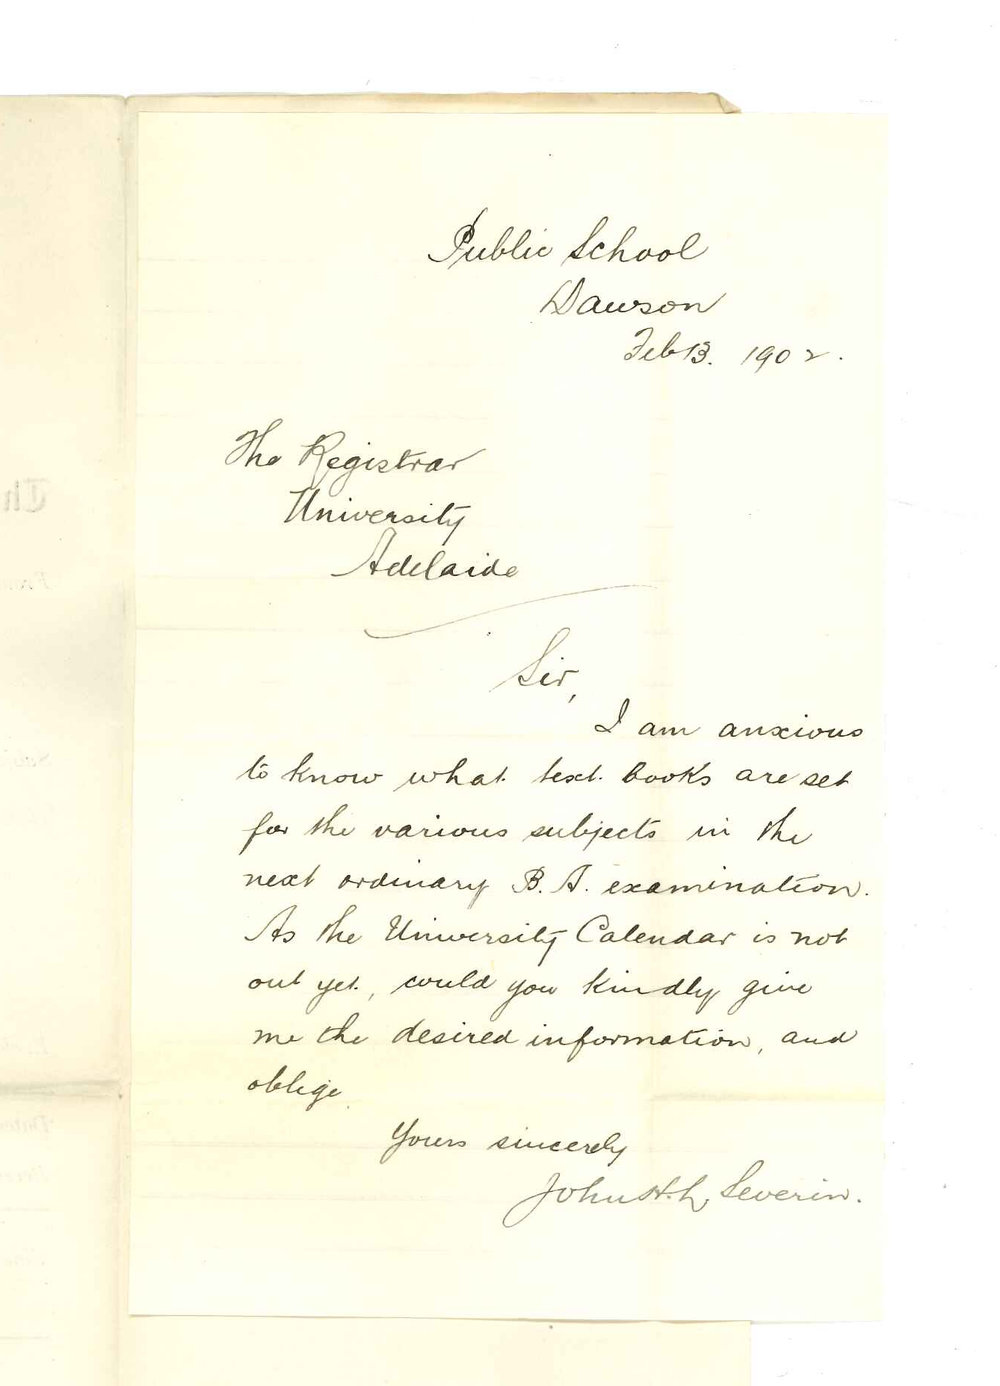 Public School
Dawson
Feb 13. 1902.
The Registrar
University
Adelaide
Sir,
I am anxious
to know what text books are set
for the various subjects in the
next ordinary B. A. examination.
As the University Calendar is not
out yet, could you kindly give
me the desired information, and
oblige
Yours sincerely
John H. L. Severin.